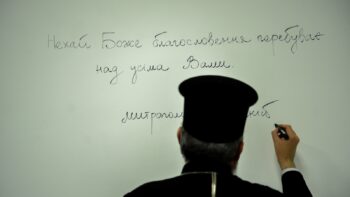 Нехай Боже благословення перебуває
над усіма Вами.